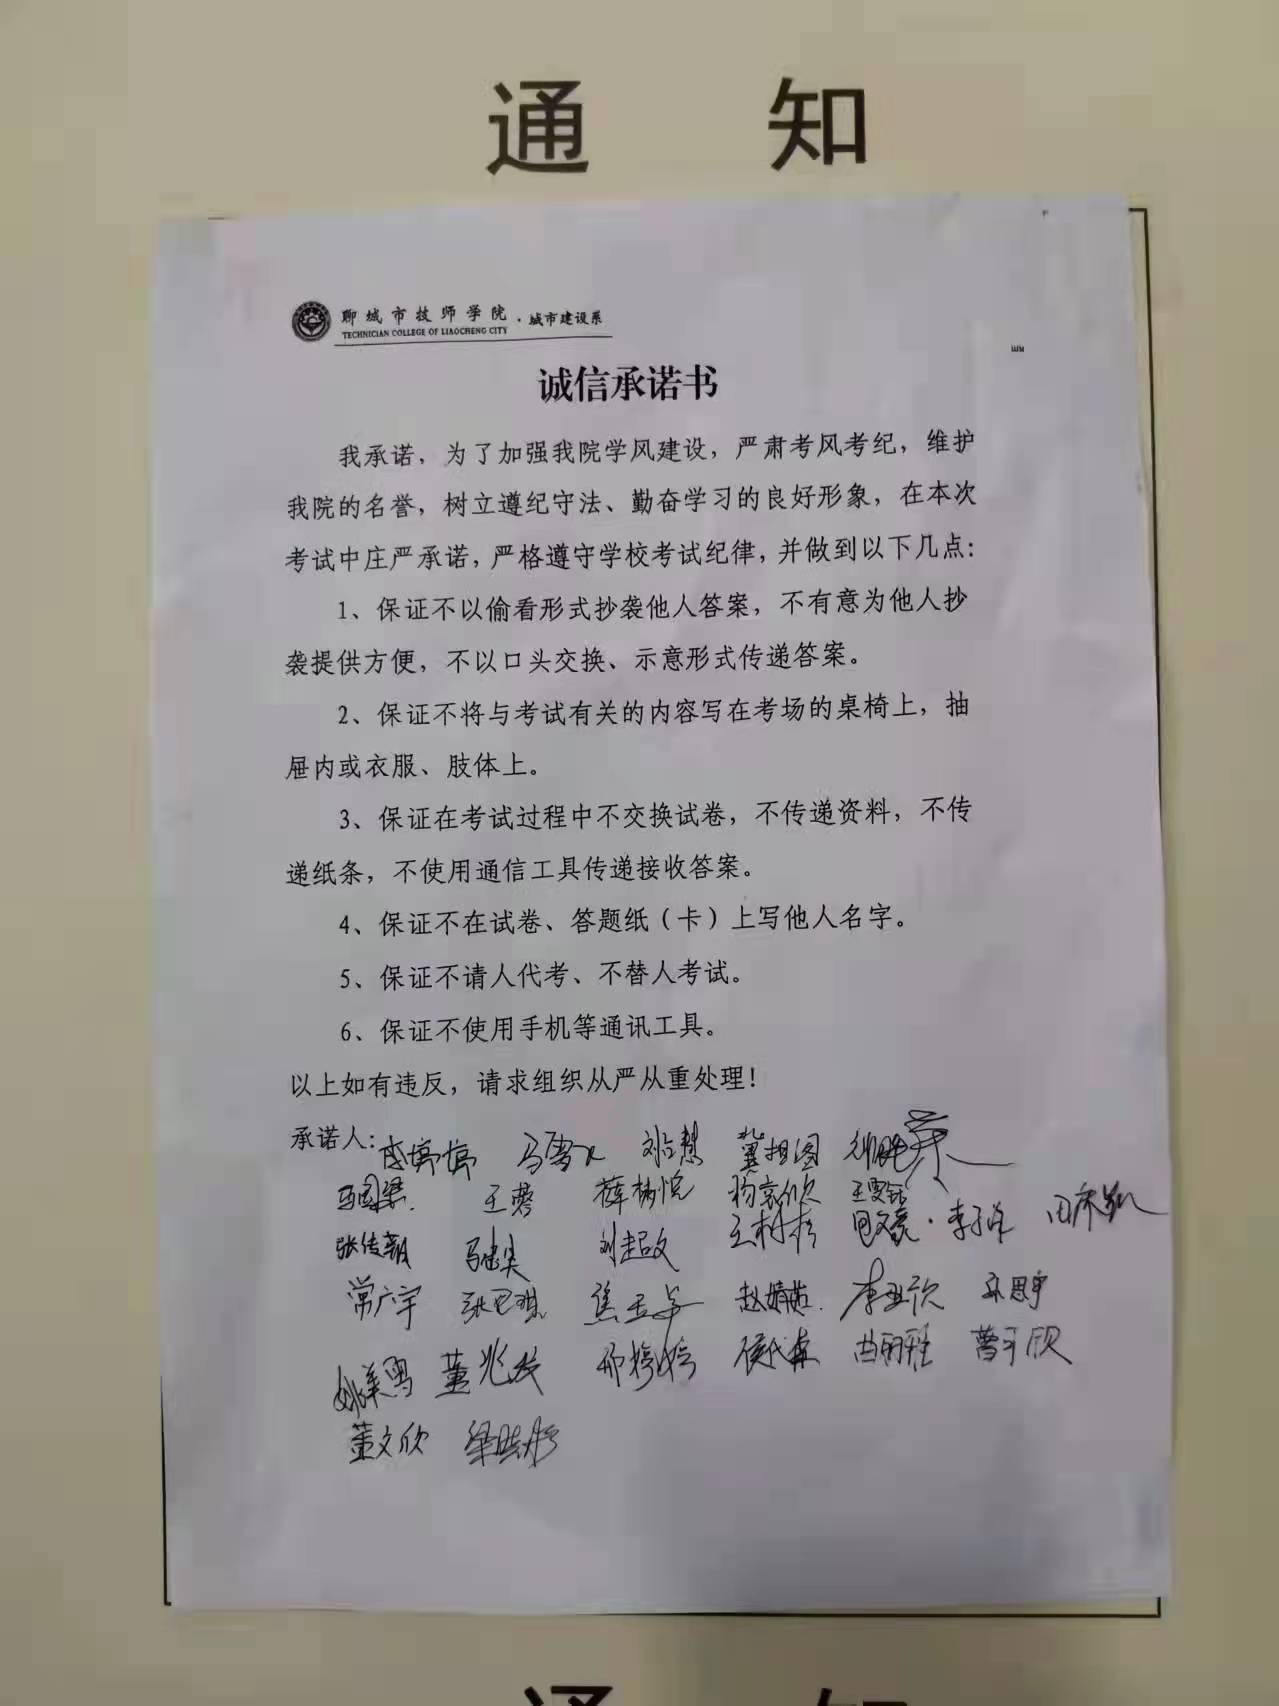 通 知
聊城市技师学院·城市建设系
TECHNICIAN COLLEGE OF LIAOCHENG CITY
诚信承诺书
我承诺，为了加强我院学风建设，严肃考风考纪，维护
我院的名誉，树立遵纪守法、勤奋学习的良好形象，在本次
考试中庄严承诺，严格遵守学校考试纪律，并做到以下几点：
1、保证不以偷看形式抄袭他人答案，不有意为他人抄
袭提供方便，不以口头交换、示意形式传递答案。
2、保证不将与考试有关的内容写在考场的桌椅上，抽
屉内或衣服、肢体上。
3、保证在考试过程中不交换试卷，不传递资料，不传
递纸条，不使用通信工具传递接收答案。
4、保证不在试卷、答题纸（卡）上写他人名字。
5、保证不请人代考、不替人考试。
6、保证不使用手机等通讯工具。
以上如有违反，请求组织从严从重处理！
承诺人：
王蓉 杨京欣 王雯钰
张传朝 刘超文 王村杉 李子洋
常广宇 赵婧茹 李亚欣 孙思宇
姚美雪 邢婷婷 侯代森 曲丽雅 曹子欣
董文欣
通 知